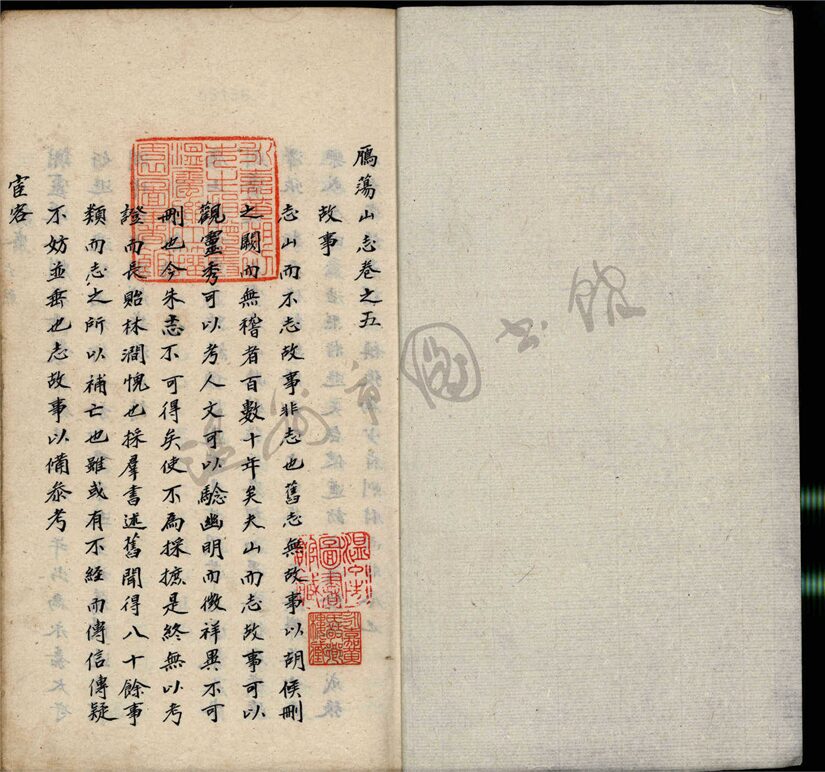 鴈蕩山志卷之五
故事
志山而不志故事非志也舊志無故事以胡侯刪
之闕而無稽者百數十年矣夫山而志故事可以
觀靈秀可以考人文可以驗幽明而徵祥異不可
刪也今朱志不可得矣使不爲採摭是終無以考
證而長貽林澗愧也採羣書述舊聞得八十餘事
類而志之所以補亡也雖或有不經而傳信傳疑
不妨並垂也志故事以備叅考
宦客
溫州市圖書館藏
溫州市圖書館